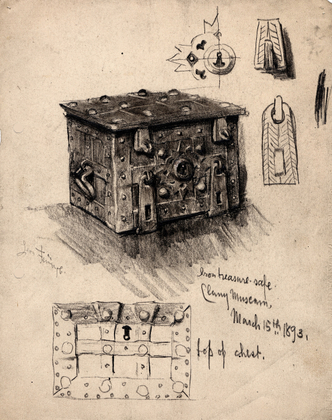 Iron treasure-safe.
Cluny Museum,
March 15th 1893.
top of chest.